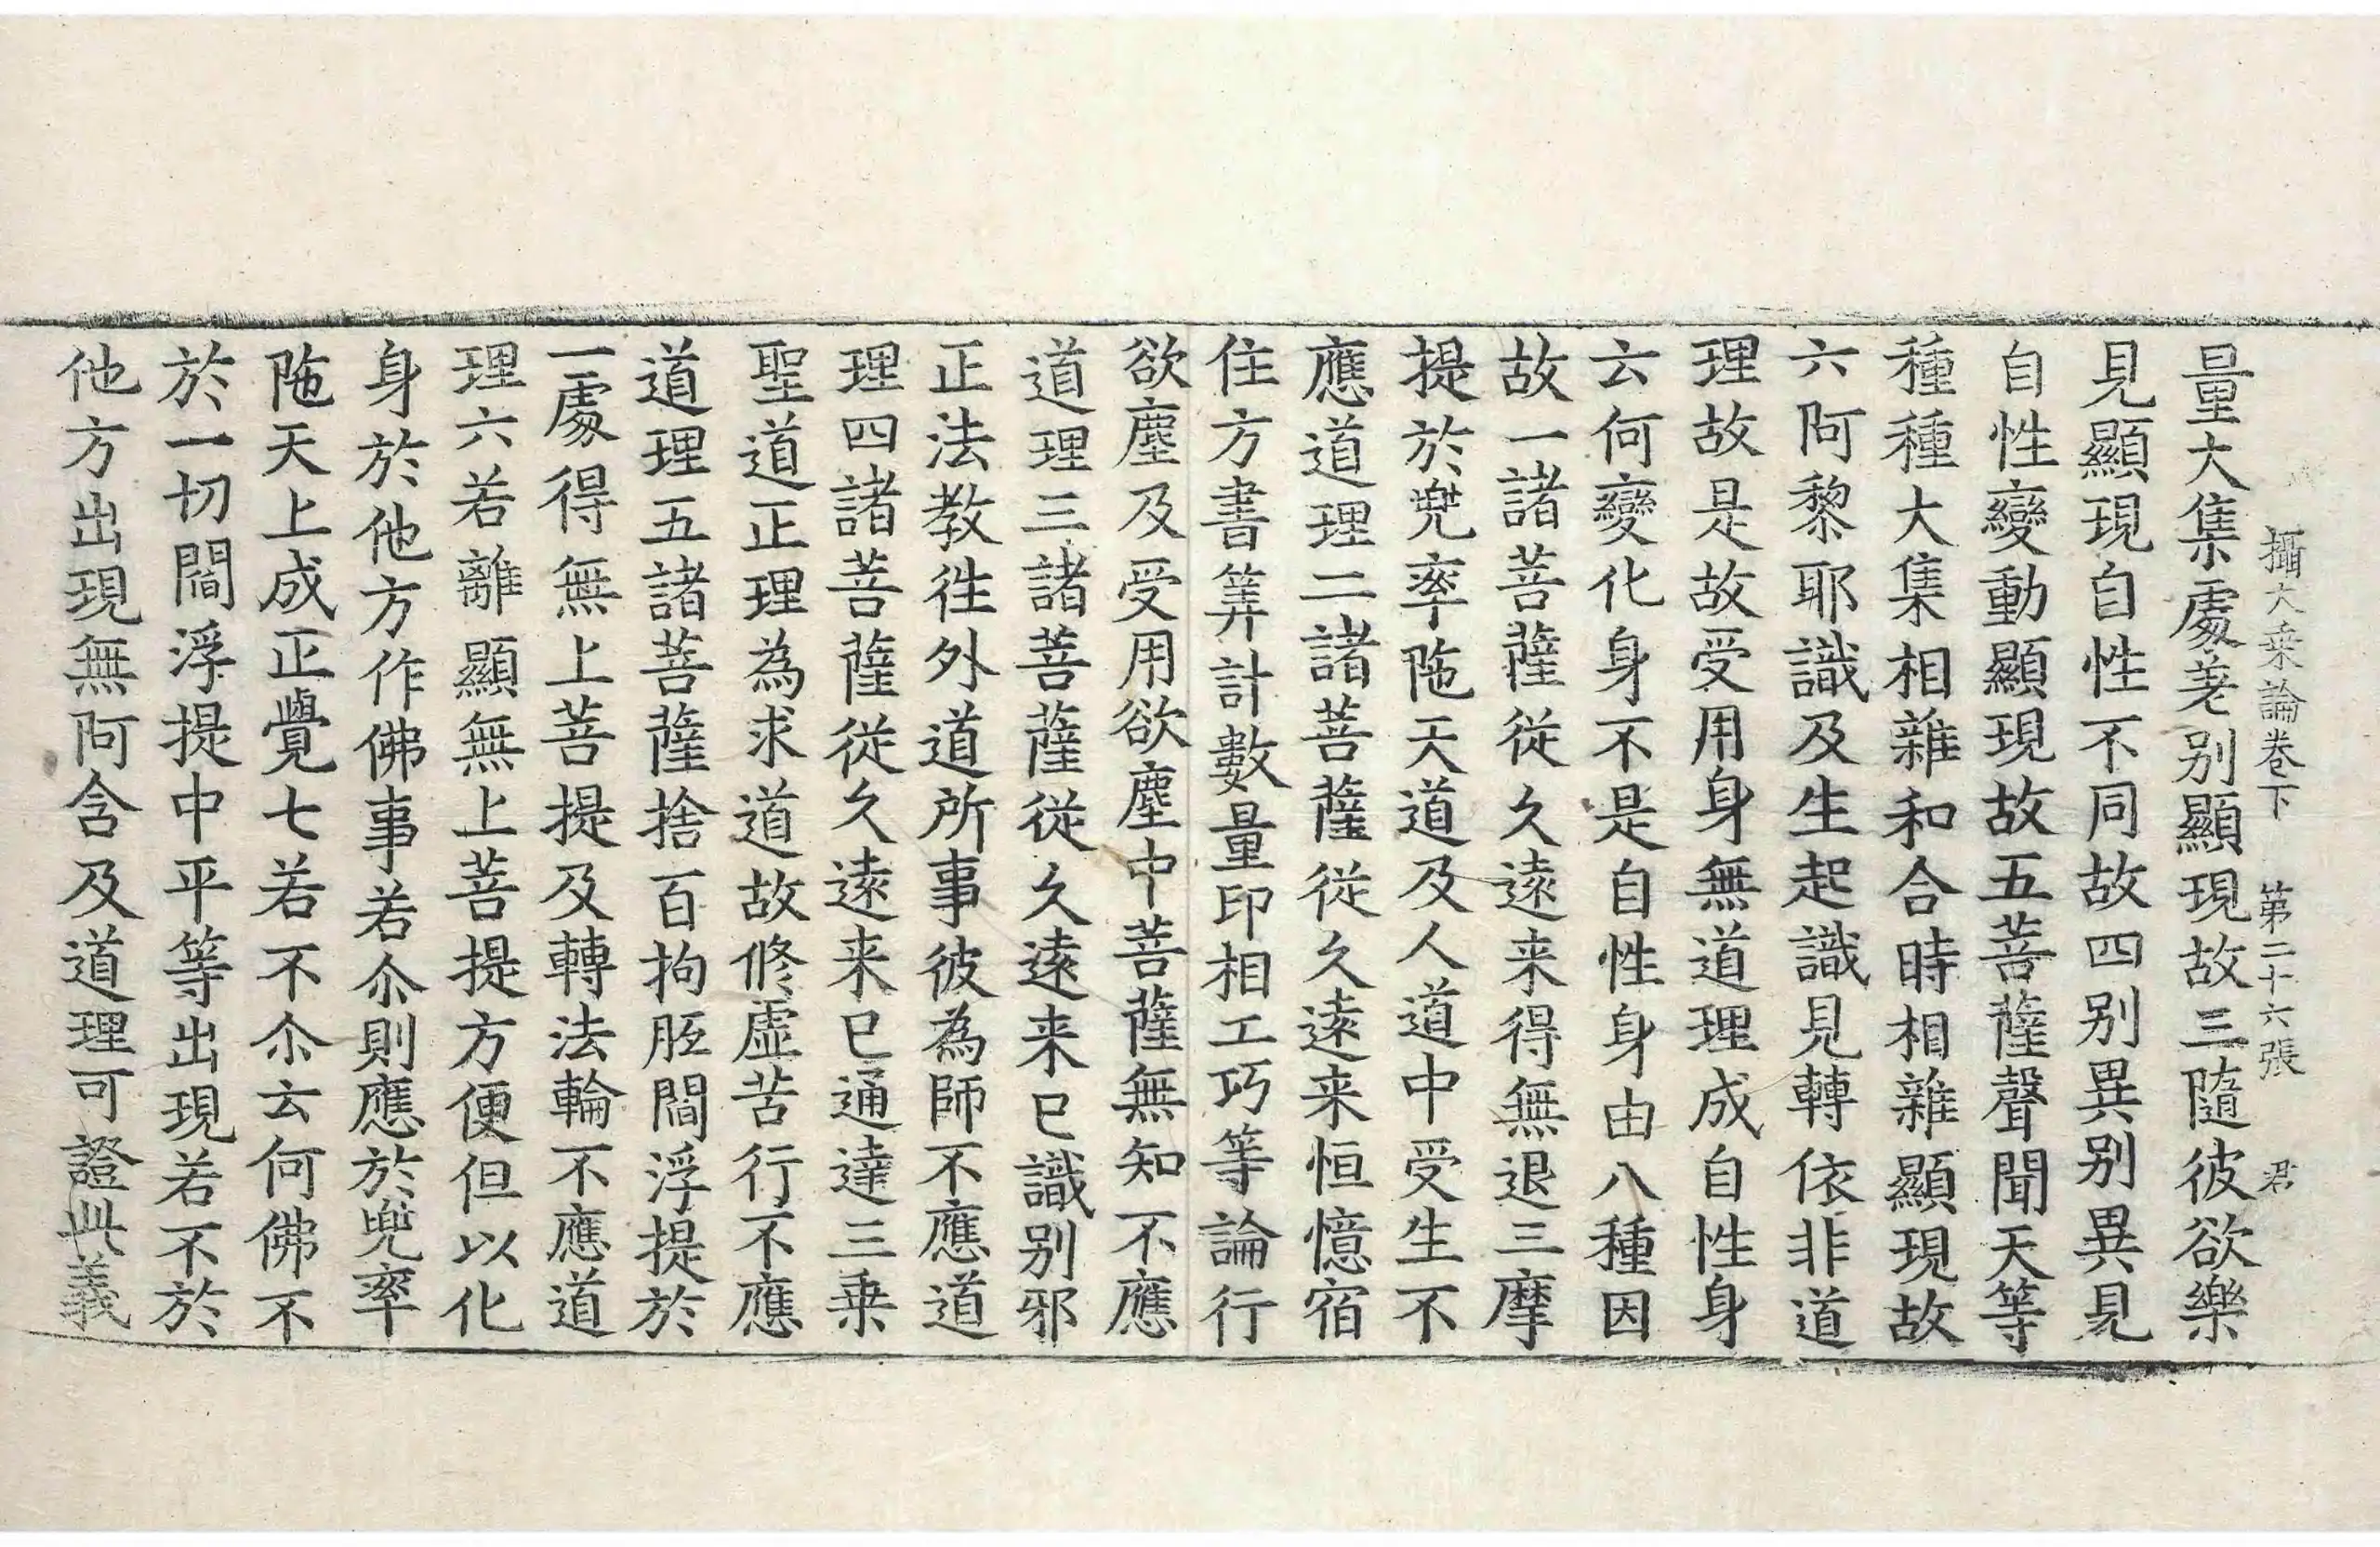 攝大乗論卷下　第二十六張　君
量大集處差别顯現故三隨彼欲樂
見顯現自性不同故四别異别異見
自性變動顯現故五菩薩聲聞天等
種種大集相雜和合時相雜顯現故
六阿黎耶識及生起識見轉依非道
理故是故受用身無道理成自性身
云何變化身不是自性身由八種因
故一諸菩薩從久遠来得無退三摩
提於兜率陁天道及人道中受生不
應道理二諸菩薩從久遠来恒憶宿
住方書筭計數量印相工巧等論行
欲塵及受用欲塵中菩薩無知不應
道理三諸菩薩從久遠来已識别邪
正法教徃外道所事彼為師不應道
理四諸菩薩從久遠来已通達三乗
聖道正理為求道故修虚苦行不應
道理五諸菩薩捨百拘胝閻浮提於
一處得無上菩提及轉法輪不應道
理六若離顯無上菩提方便但以化
身於他方作佛事若尒則應於兜率
陁天上成正覺七若不尒云何佛不
於一切閻浮提中平等出現若不於
他方出現無阿含及道理可證此義